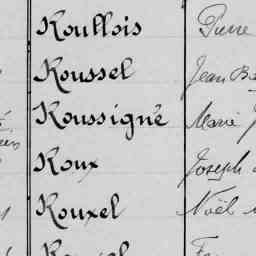 Roullois Pierre
Roussel Jean Ba
Roussigné Marie J
Roux Joseph
Rouxel Noël